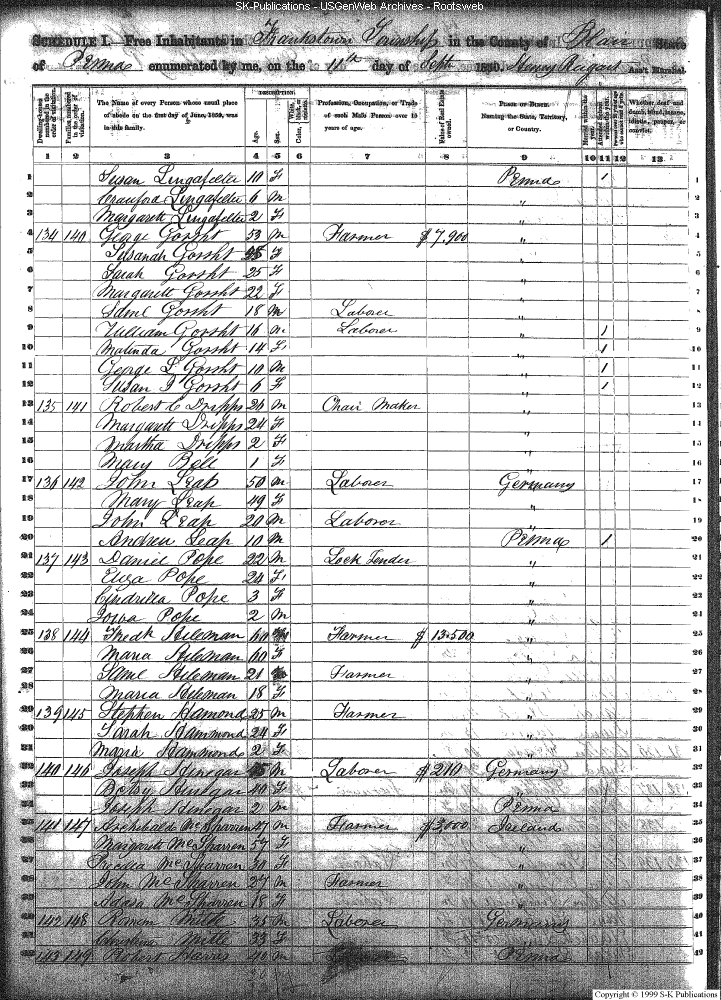 SK-Publications - USGenWeb Archives - Rootsweb
SCHEDULE I.—Free Inhabitants in Frankstown Township in the County of Blair State
of Penna enumerated by me, on the 11th day of Sept 1850. Henry Ass't Marshal.
Dwelling-houses numbered in the order of visitation. Families numbered in the order of visitation. The Name of every Person whose usual place of abode on the first day of June, 1850, was in this family. DESCRIPTION. Age. Sex. Color, White, black, or mulatto. Profession, Occupation, or Trade of each Male Person over 15 years of age. Value of Real Estate owned. PLACE OF BIRTH. Naming the State, Territory, or Country. Married within the year. Attended School within the year. Whether deaf and dumb, blind, insane, idiotic, pauper, or convict.
1 2 3 4 5 6 7 8 9 10 11 12 13
1 Susan Lingafelter 10 F Penna 1 1
2 Crawford Lingafelter 6 M " 2
3 Margarett Lingafelter 2 F " 3
4 134 140 George Gorsht 53 M Farmer $7,900 " 4
5 Susanah Gorsht F " 5
6 Sarah Gorsht 25 F " 6
7 Margarett Gorsht 22 F " 7
8 Saml Gorsht 18 M Laborer " 8
9 William Gorsht 16 M Laborer " 1 9
10 Malinda Gorsht 14 F " 1 10
11 George L Gorsht 10 M " 1 11
12 Susan Gorsht 6 F " 1 12
13 135 141 Robert C Dripps 26 M Chair Maker " 13
14 Margarett Dripps 24 F " 14
15 Martha Dripps 2 F " 15
16 Mary Bell 1 F " 16
17 136 142 John Leap 50 M Laborer Germany 17
18 Mary Leap 49 F " 18
19 John Leap 20 M Laborer " 19
20 Andrew Leap 10 M Penna 1 20
21 137 143 Daniel Pope 22 M Lock Tender " 21
22 Eliza Pope 24 F " 22
23 Cindrilla Pope 3 F " 23
24 Iowa Pope 2 M " 24
25 138 144 Fredk Hileman 60 Farmer $13.500 " 25
26 Maria Hileman 60 F " 26
27 Saml Hileman 21 Farmer " 27
28 Maria Hileman 18 F " 28
29 139 145 Stephen Hamond 25 M Farmer " 29
30 Sarah Hammond 24 F " 30
31 Maria Hammond 2 F " 31
32 140 146 Joseph Hinegar M Laborer $210 Germany 32
33 Betsy Hinegar 40 F " 33
34 Joseph Hinegar 2 M Penna 34
35 141 147 Archebald McSparren M Farmer $3,000 Ireland 35
36 Margarett McSparren 57 F " 36
37 McSparren 30 F " 37
38 John McSparren 27 M Farmer " 38
39 McSparren 18 F " 39
40 142 148 35 M Laborer Germany 40
41 Christina 33 F " 41
42 143 149 Robert Harris 40 M Penna 42
Copyright © 1999 S-K Publications